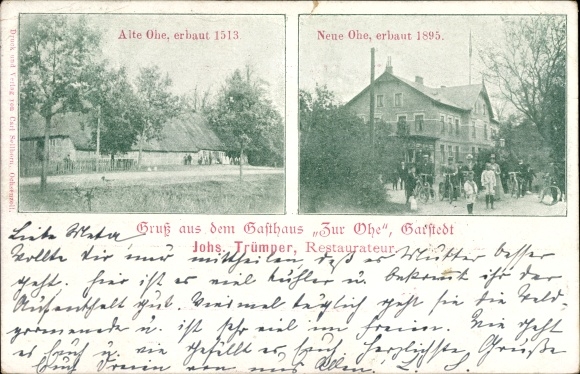 Alte Ohe, erbaut 1513.
Neue Ohe, erbaut 1895.
Druck und Verlag von Carl
Gruß aus dem Gasthaus „Zur Ohe“, Garstedt
Johs. Trümper, Restaurateur.
Liebe Meta
Wollte Dir nur mittheilen daß es Mutter besser
geht. hier ist es viel kühler u. bekommt ihr der
Aufenthalt gut. Viermal täglich geht sie die Wald-
promenade u. ist sehr viel im freien. Wie geht
es Euch u. wie gefällt es Euch herzlichste Grüße
Euch Dreien von uns Allen.